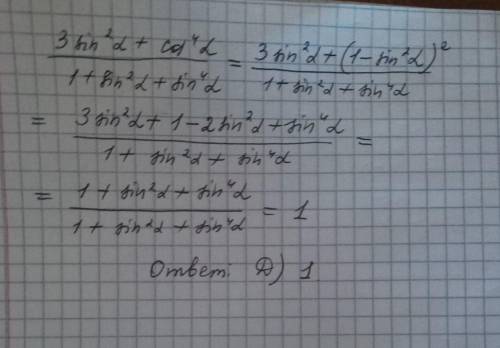 (3sin²α + cos⁴α)/(1 + sin²α + sin⁴α) = (3sin²α + (1 - sin²α)²)/(1 + sin²α + sin⁴α)
= (3sin²α + 1 - 2sin²α + sin⁴α)/(1 + sin²α + sin⁴α) =
= (1 + sin²α + sin⁴α)/(1 + sin²α + sin⁴α) = 1
Ответ: Д) 1